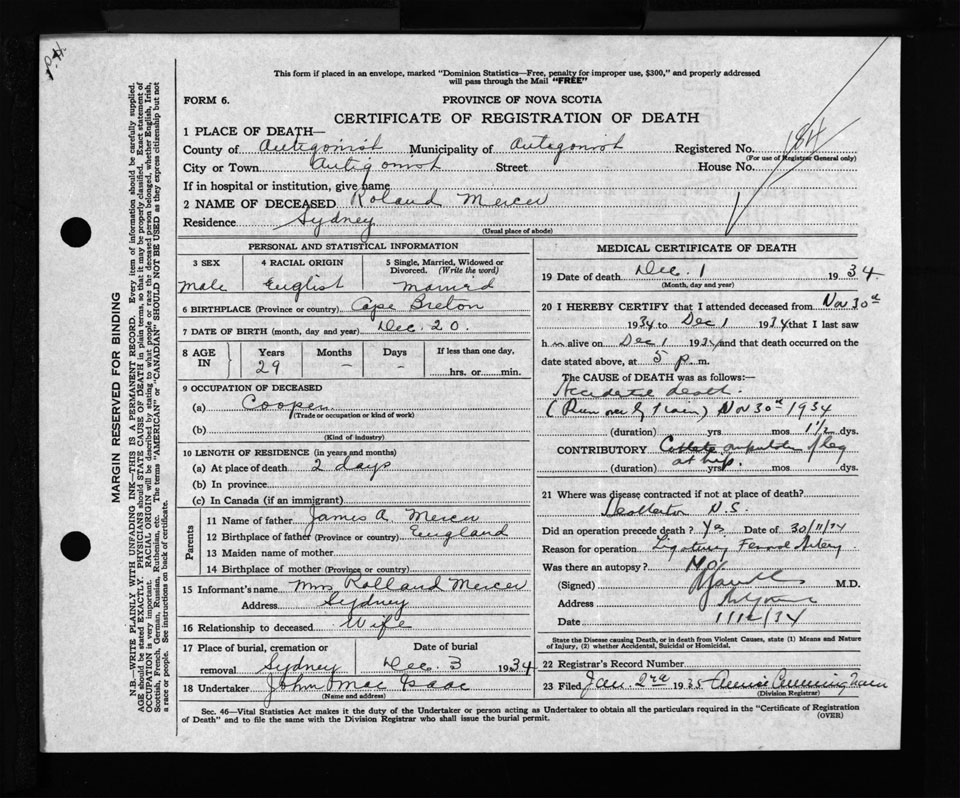 This form if placed in an envelope, marked "Dominion Statistics—Free, penalty for improper use, $300," and properly addressed
will pass through the Mail "FREE"
FORM 6.
PROVINCE OF NOVA SCOTIA
CERTIFICATE OF REGISTRATION OF DEATH
1 PLACE OF DEATH—
County of Antigonish Municipality of Antigonish Registered No. 184
(For use of Registrar General only)
City or Town Antigonish Street House No.
If in hospital or institution, give name
2 NAME OF DECEASED Roland Mercer
Residence Sydney
(Usual place of abode)
PERSONAL AND STATISTICAL INFORMATION
3 SEX 4 RACIAL ORIGIN 5 Single, Married, Widowed or
Divorced. (Write the word)
Male English Married
6 BIRTHPLACE (Province or country) Cape Breton
7 DATE OF BIRTH (month, day and year) Dec. 20.
8 AGE IN Years Months Days If less than one day,
29 – – hrs. or min.
9 OCCUPATION OF DECEASED
(a) Cooper
(Trade or occupation or kind of work)
(b)
(Kind of industry)
10 LENGTH OF RESIDENCE (in years and months)
(a) At place of death 2 days
(b) In province
(c) In Canada (if an immigrant)
Parents
11 Name of father James A. Mercer
12 Birthplace of father (Province or country) England
13 Maiden name of mother
14 Birthplace of mother (Province or country)
15 Informant's name Mrs Rolland Mercer
Address Sydney
16 Relationship to deceased Wife
17 Place of burial, cremation or Date of burial
removal Sydney Dec. 3 1934
18 Undertaker John Mac Isaac
(Name and address)
MEDICAL CERTIFICATE OF DEATH
19 Date of death Dec. 1 1934
(Month, day and year)
20 I HEREBY CERTIFY that I attended deceased from Nov 30th
1934 to Dec 1 1934 that I last saw
him alive on Dec 1 1934 and that death occurred on the
date stated above, at 5 p. m.
The CAUSE of DEATH was as follows:—
Accidental death.
(Run over by train) Nov 30th 1934
(duration) yrs. mos 1 1/2 dys.
CONTRIBUTORY amputation of leg
at hip.
(duration) yrs. mos dys.
21 Where was disease contracted if not at place of death?
N.S.
Did an operation precede death? Yes Date of 30/11/34
Reason for operation Femoral Artery
Was there an autopsy? No
(Signed) M.D.
Address
Date 1/12/34
State the Disease causing Death, or in death from Violent Causes, state (1) Means and Nature
of Injury, (2) whether Accidental, Suicidal or Homicidal.
22 Registrar's Record Number
23 Filed Jan. 2nd 1935 Annie Cunningham
(Division Registrar)
Sec. 46—Vital Statistics Act makes it the duty of the Undertaker or person acting as Undertaker to obtain all the particulars required in the "Certificate of Registration
of Death" and to file the same with the Division Registrar who shall issue the burial permit.
(OVER)
MARGIN RESERVED FOR BINDING
N.B.—WRITE PLAINLY WITH UNFADING INK—THIS IS A PERMANENT RECORD. Every item of information should be carefully supplied.
AGE should be stated EXACTLY. PHYSICIANS should STATE CAUSE OF DEATH in plain terms, so that it may be properly classified. Exact statement of
OCCUPATION is very important. RACIAL ORIGIN will be described by stating to what people or race the deceased person belonged, whether English, Irish,
Scottish, French, German, Russian, Ruthenian, etc. The terms "AMERICAN" or "CANADIAN" SHOULD NOT BE USED as they express citizenship but not
a race or people. See instructions on back of certificate.